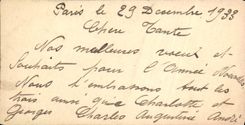 Paris le 29 Decembre 1933
Chere Tante
Nos meilleures voeux et
Souhaits pour l'Année Nouvelle
Nous t'embrassons tout les
trois ainsi que Charlotte et
Georges Charles Augustine André